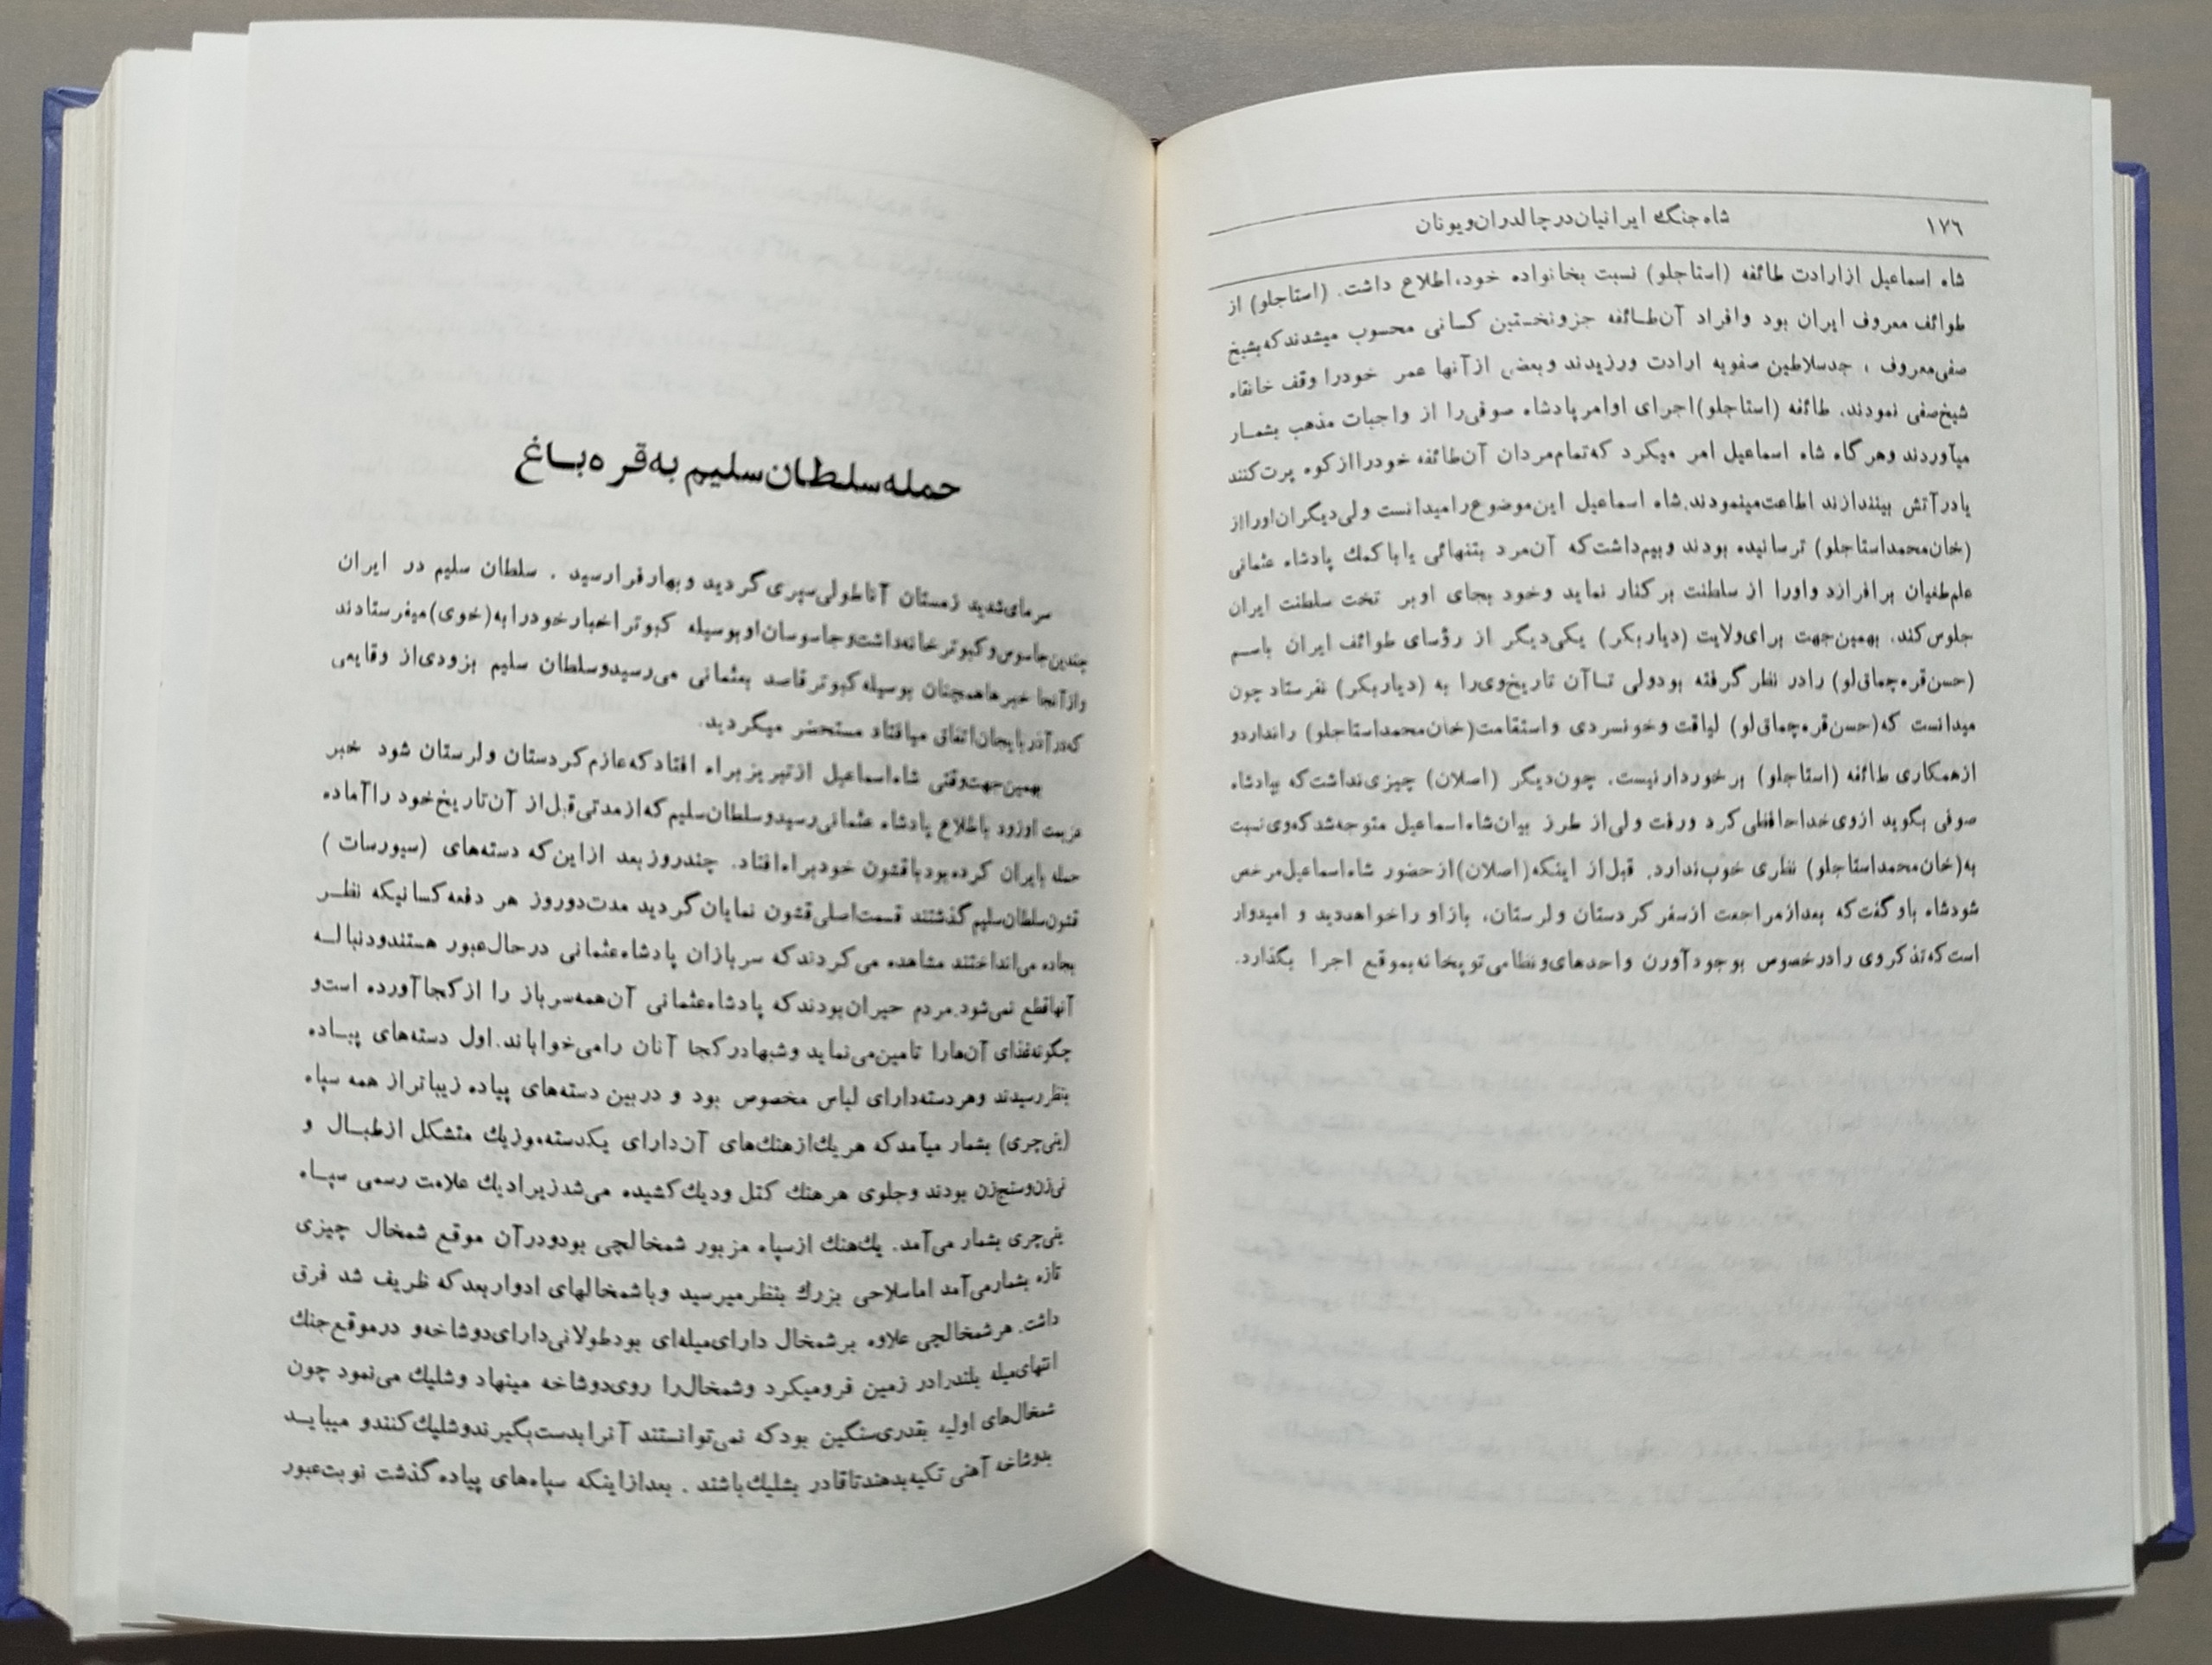 ۱۷٦ شاه جنگ ایرانیان در چالدران و یونان
شاه اسماعیل از ارادت طائفه (استاجلو) نسبت بخانواده خود، اطلاع داشت. (استاجلو) از
طوائف معروف ایران بود وافراد آن طـائفه جزو نخستین کسانی محسوب میشدند که بشیخ
صفی معروف ، جد سلاطین صفویه ارادت ورزیدند وبعضی از آنها عمر خودرا وقف خانقاه
شیخ صفی نمودند. طائفه (استاجلو) اجرای اوامر پادشاه صوفی را از واجبات مذهب بشمـار
میآوردند وهر گاه شاه اسماعیل امر میکرد که تمام مردان آن طائفه خودرا از کوه پرت کنند
یا در آتش بیندازند اطاعت مینمودند. شاه اسماعیل این موضوع را میدانست ولی دیگران اورا از
(خان محمد استاجلو) ترسانیده بودند وبیم داشت که آن مرد بتنهائی یا با کمك پادشاه عثمانی
علم طغیان برافرازد واورا از سلطنت بر کنار نماید وخود بجای اوبر تخت سلطنت ایران
جلوس کند. بهمین جهت برای ولایت (دیار بکر) یکی دیگر از رؤسای طوائف ایران باسـم
(حسن قره چماق لو) رادر نظر گرفته بود ولی تـا آن تاریخ وی را به (دیار بکر) نفرستاد چون
میدانست که (حسن قره چماق لو) لیاقت وخونسردی و استقامت (خان محمد استاجلو) را ندارد و
از همکاری طائفه (استاجلو) برخوردار نیست. چون دیگر (اصلان) چیزی نداشت که بپادشاه
صوفی بگوید از وی خداحافظی کرد ورفت ولی از طرز بیان شاه اسماعیل متوجه شد که وی نسبت
به (خان محمد استاجلو) نظری خوب ندارد. قبل از اینکه (اصلان) از حضور شاه اسماعیل مرخص
شود شاه باو گفت که بعد از مراجعت از سفر کردستان ولرستان، باز او را خواهد دید و امیدوار
است که تذکر وی را در خصوص بوجود آوردن واحدهای نظامی توپخانه بموقع اجرا بگذارد.
حمله سلطان سلیم به قره بـاغ
سرمای شدید زمستان آناطولی سپری گردید وبهار فرا رسید . سلطان سلیم در ایران
چندین جاسوس و کبوتر خانه داشت و جاسوسان او بوسیله کبوتر اخبار خود را به (خوی) میفرستادند
واز آنجا خبرها همچنان بوسیله کبوتر قاصد بعثمانی می رسید و سلطان سلیم بزودی از وقایعی
که در آذربایجان اتفاق میافتاد مستحضر میگردید.
بهمین جهت وقتی شاه اسماعیل از تبریز براه افتاد که عازم کردستان ولرستان شود خبر
عزیمت او زود باطلاع پادشاه عثمانی رسید و سلطان سلیم که از مدتی قبل از آن تاریخ خود را آماده
حمله بایران کرده بود با قشون خود براه افتاد. چند روز بعد از این که دسته های (سیورسات )
قشون سلطان سلیم گذشتند قسمت اصلی قشون نمایان گردید مدت دو روز هر دفعه کسانیکه نظـر
بجاده می انداختند مشاهده می کردند که سربازان پادشاه عثمانی در حال عبور هستند و دنبالـه
آنها قطع نمی شود. مردم حیران بودند که پادشاه عثمانی آن همه سرباز را از کجا آورده است و
چگونه غذای آن ها را تامین می نماید و شبها در کجا آنان را می خواباند. اول دسته های پیـاده
بنظر رسیدند وهر دسته دارای لباس مخصوص بود و در بین دسته های پیاده زیباتر از همه سپاه
(ینی چری) بشمار میآمد که هر یك از هنك های آن دارای یکدسته موزیك متشکل از طبـال و
نی زن و سنج زن بودند وجلوی هر هنك کتل ودیك کشیده می شد زیرا دیك علامت رسمی سپـاه
ینی چری بشمار می آمد. یك هنك از سپاه مزبور شمخالچی بود و در آن موقع شمخال چیزی
تازه بشمار می آمد اما سلاحی بزرك بنظر میرسید و با شمخالهای ادوار بعد که ظریف شد فرق
داشت. هر شمخالچی علاوه بر شمخال دارای میله ای بود طولانی دارای دو شاخه و در موقع جنك
انتهای میله بلند را در زمین فرو میکرد وشمخال را روی دو شاخه مینهاد وشلیك می نمود چون
شمخال های اولیه بقدری سنگین بود که نمی توانستند آنرا بدست بگیرند و شلیك کنند و میبایـد
بدو شاخه آهنی تکیه بدهند تا قادر بشلیك باشند . بعد از اینکه سپاه های پیاده گذشت نوبت عبور